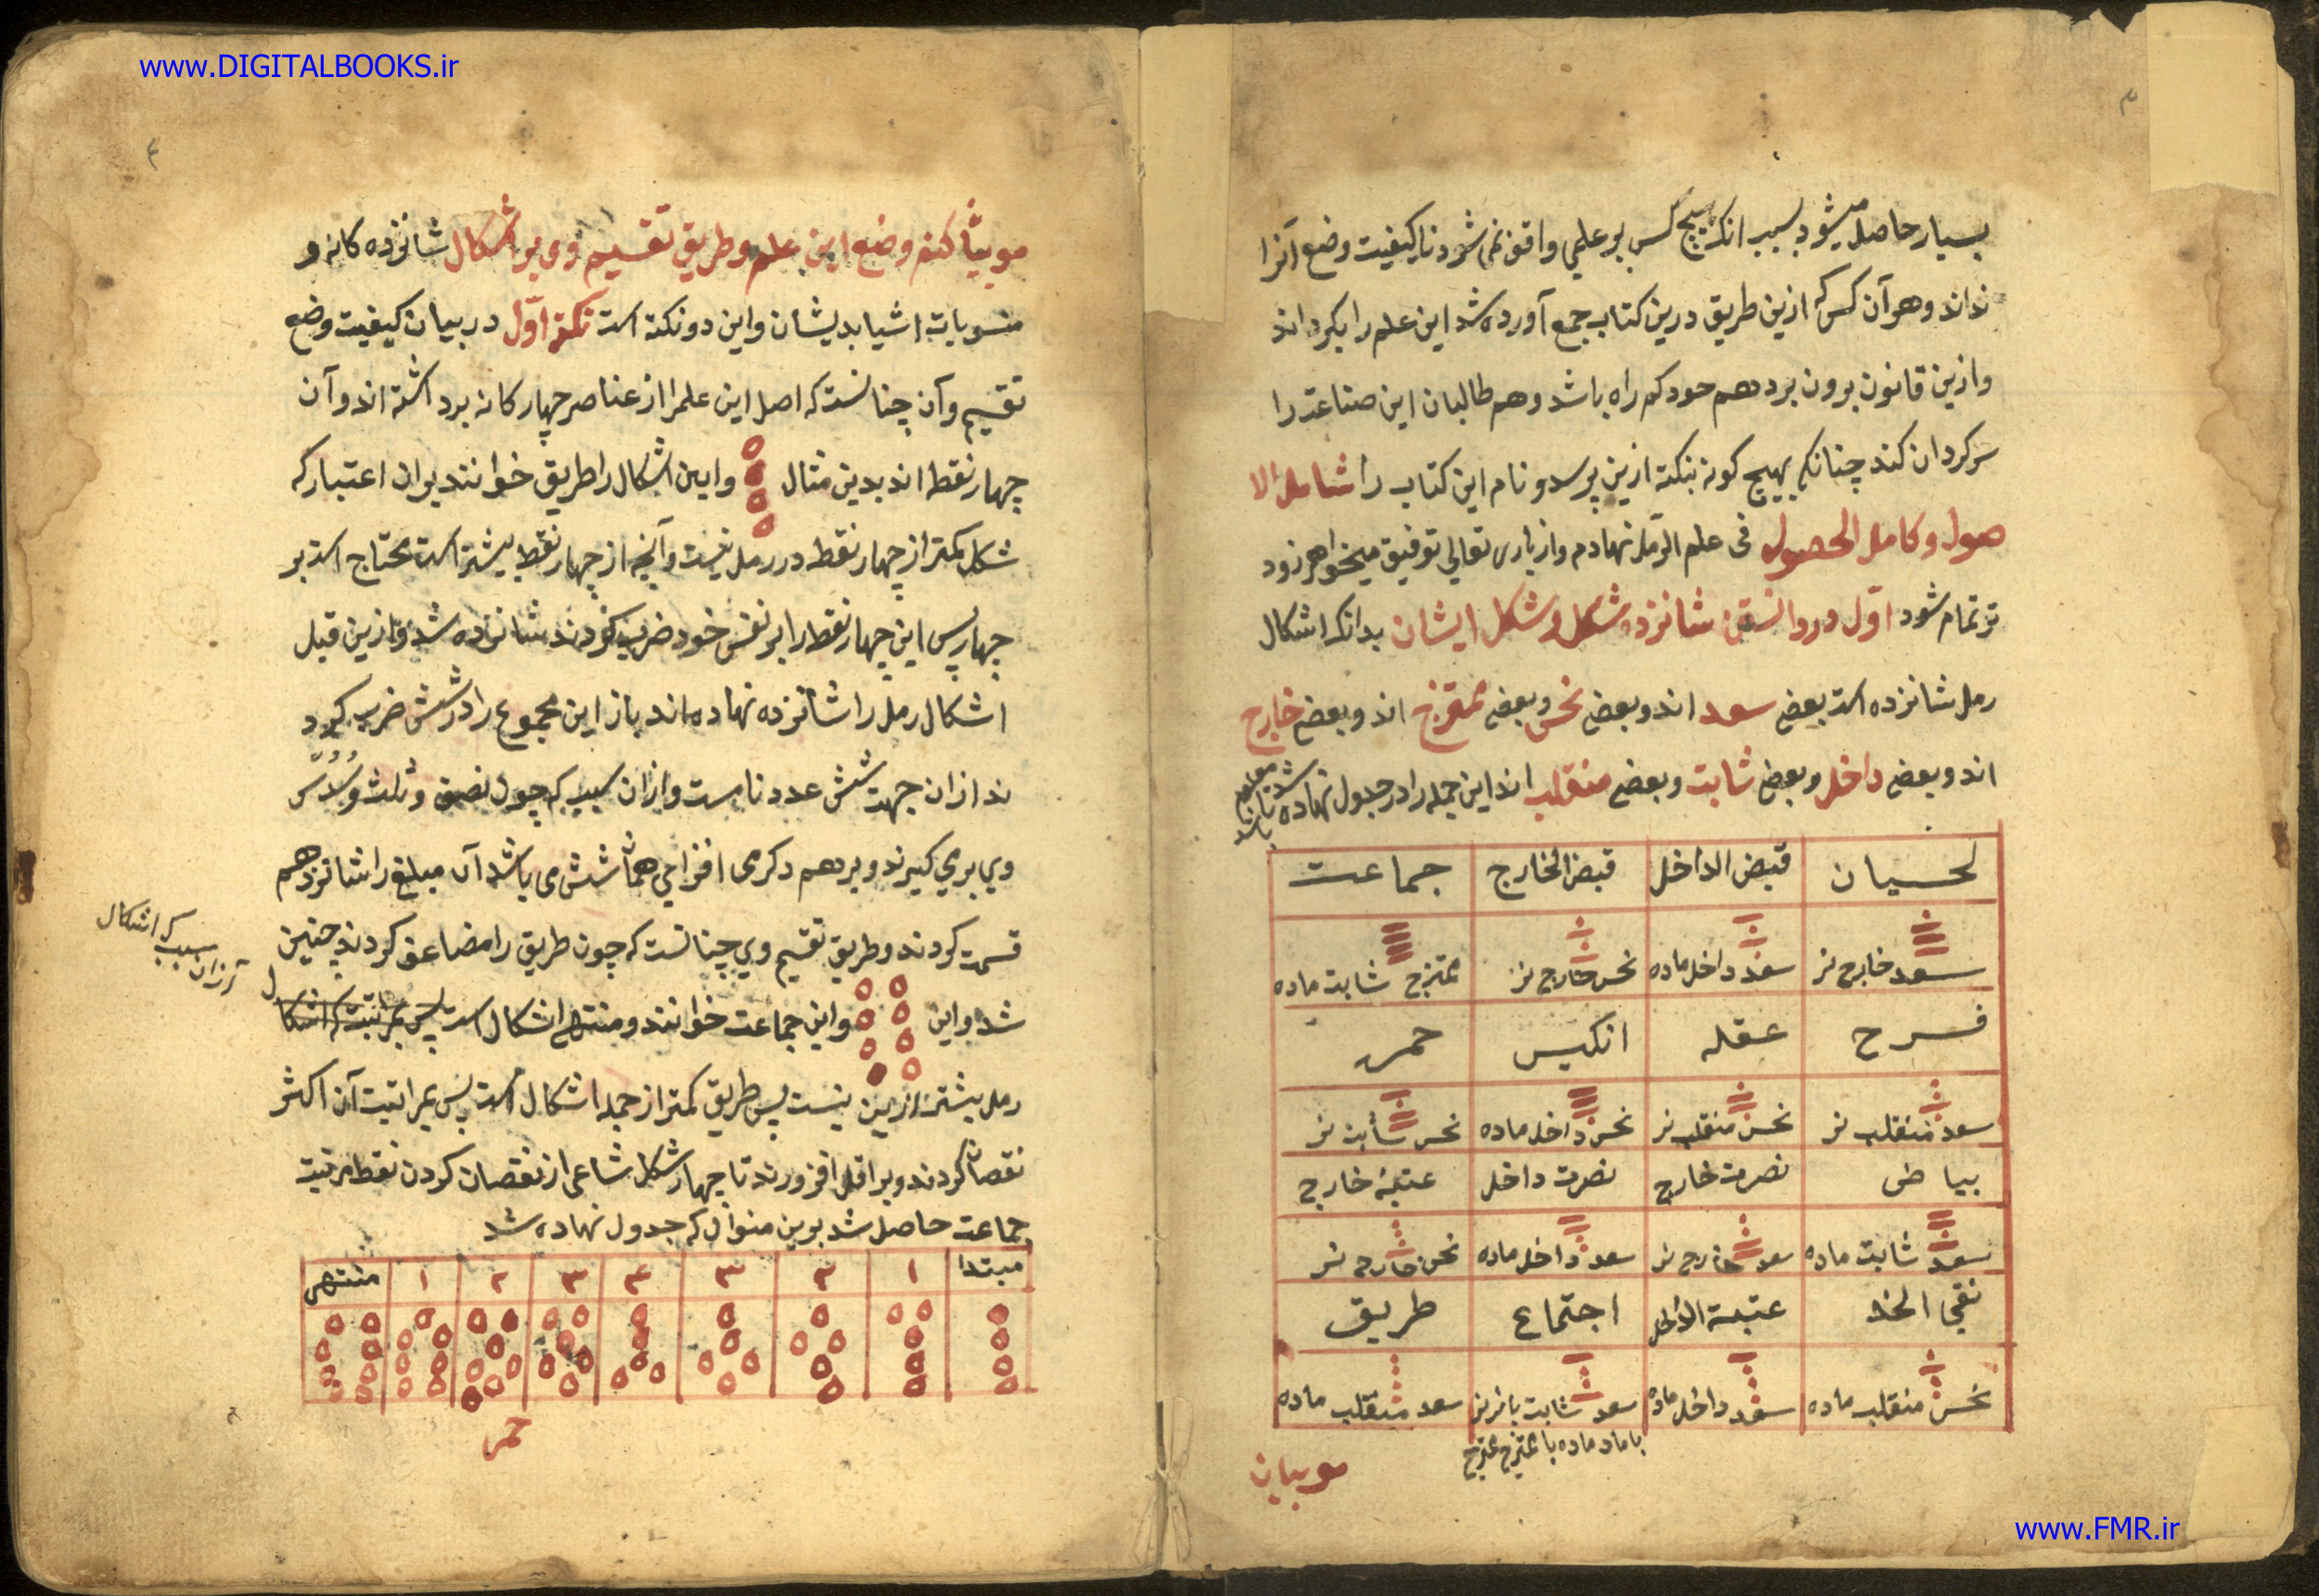 www.DIGITALBOOKS.ir
بسیار حاصل میشود بسبب انک هیچ کس بر علمی واقف نمی شود تا کیفیت وضع آنرا
نداند و هر آن کس که ازین طریق درین کتاب جمع آورده شد این علم را بکرداند
و ازین قانون برون برد هم خود کم راه باشد و هم طالبان این صناعت را
سرکردان کند چنانکه بهیچ کونه بنکته ازین پرسد و نام این کتاب را شامل الا
صول و کامل الحصول فی علم الرمل نهادم و از باری تعالی توفیق میخواهم زود
تر تمام شود اول در دانستن شانزده شکل و شکل ایشان بدانک اشکال
رمل شانزده است بعضی سعد اند و بعضی نحس و بعضی ممتزج اند و بعضی خارج
اند و بعضی داخل و بعضی ثابت و بعضی منقلب اند این جمله را در جدول نهاده شد تا معلوم باشد
لحیان قبض الداخل قبض الخارج جماعت
سعد خارج نر سعد داخل ماده نحس خارج نر ممتزج ثابت ماده
فرح عقله انکیس حمره
سعد منقلب نر نحس منقلب نر نحس داخل ماده نحس ثابت نر
بیاض نصرت خارج نصرت داخل عتبه خارج
سعد ثابت ماده سعد خارج نر سعد داخل ماده نحس خارج نر
نقی الخد عتبة الداخل اجتماع طریق
نحس منقلب ماده سعد داخل ماده سعد ثابت با نر نر سعد منقلب ماده
با ماده ماده با ممتزج ممتزج
موبیان
موبیان کنم وضع این علم و طریق تقسیم وی بر اشکال شانزده کانه و
منسوبات اشیا بدیشان و این دو نکته است نکته اول در بیان کیفیت وضع
تقسیم و آن چنانست که اصل این علم را از عناصر چهار کانه برداشته اند و آن
چهار نقطه اند بدین مثال و این اشکال را طریق خوانند بران اعتبار که
شکل کمتر از چهار نقطه در رمل نیست و آنچه از چهار نقطه بیشتر است محتاج است بر
چهار پس این چهار نقطه را بر نفس خود ضرب کردند شانزده شد و ازین قبل
اشکال رمل را شانزده نهاده اند باز این مجموع را در شش ضرب کرد
ند از ان جهت شش عدد تامست و از ان سبب که چون نصف و ثلث و سدس
وی بری کیرند و بر هم دکر می افزایی هما شش می باشد آن مبلغ را شانزدهم
قسمت کردند و طریق تقسیم وی چنانست که چون طریق را مضاعف کردند چنین
شد و این و این جماعت خوانند و منتهی اشکال است
از ان سبب که اشکال
رمل بیشتر ازین نیست پس طریق کمتر از جمله اشکال است پس بمراتبت آن اکثر
نقصان کردند و بر اقل افزورند تا چهار شکل شاعی از نقصان کردن نقطه مرتبت
جماعت حاصل شد برین منوال که جدول نهاده شد
مبتدا ۱ ۲ ۳ ۴ ۳ ۲ ۱ منتهی
حمر
www.FMR.ir